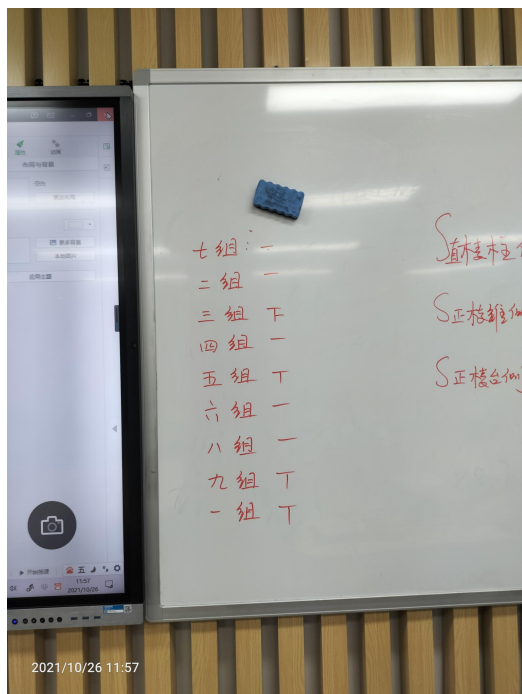 布局与背景
更多背景
七组: 一
二组 一
三组 下
四组 一
五组 丅
六组 一
八组 一
九组 丅
一组 丅
S直棱柱
S正棱锥侧
S正棱台侧
五
11:57
2021/10/26
2021/10/26 11:57